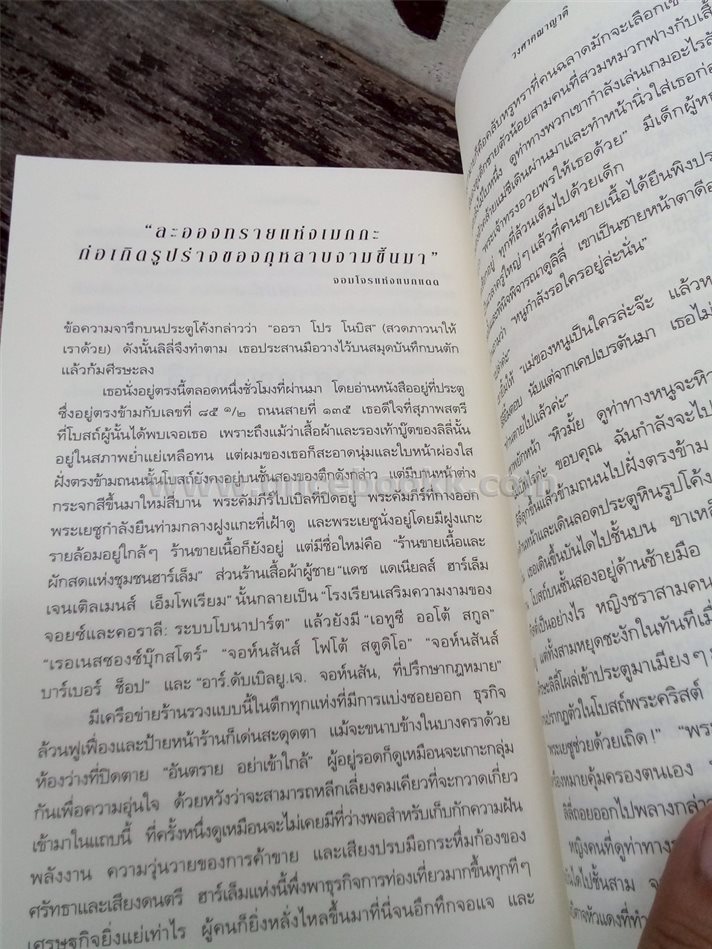 "ละอองทรายแห่งเมกกะ
ก่อเกิดรูปร่างของกุหลาบงามขึ้นมา"
จอมโจรแห่งแบกแดด
ข้อความจารึกบนประตูโค้งกล่าวว่า "ออรา โปร โนบิส" (สวดภาวนาให้
เราด้วย) ดังนั้นลิลี่จึงทำตาม เธอประสานมือวางไว้บนสมุดบันทึกบนตัก
แล้วก้มศีรษะลง
เธอนั่งอยู่ตรงนี้ตลอดหนึ่งชั่วโมงที่ผ่านมา โดยอ่านหนังสืออยู่ที่ประตู
ซึ่งอยู่ตรงข้ามกับเลขที่ ๘๕ ๑/๒ ถนนสายที่ ๑๓๕ เธอดีใจที่สุภาพสตรี
ที่โบสถ์ผู้นั้นได้พบเจอเธอ เพราะถึงแม้ว่าเสื้อผ้าและรองเท้าบู๊ตของลิลี่นั้น
อยู่ในสภาพย่ำแย่เหลือทน แต่ผมของเธอก็สะอาดนุ่มและใบหน้าผ่องใส
ฝั่งตรงข้ามถนนนั้นโบสถ์ยังคงอยู่บนชั้นสองของตึกดังกล่าว แต่มีบานหน้าต่าง
กระจกสีขึ้นมาใหม่สี่บาน พระคัมภีร์ไบเบิลที่ปิดอยู่ พระคัมภีร์ที่กางออก
พระเยซูกำลังยืนท่ามกลางฝูงแกะที่เฝ้าดู และพระเยซูนั่งอยู่โดยมีฝูงแกะ
รายล้อมอยู่ใกล้ๆ ร้านขายเนื้อก็ยังอยู่ แต่มีชื่อใหม่คือ "ร้านขายเนื้อและ
ผักสดแห่งชุมชนฮาร์เล็ม" ส่วนร้านเสื้อผ้าผู้ชาย "แดช แดเนียลส์ ฮาร์เล็ม
เจนเติลเมนส์ เอ็มโพเรียม" นั้นกลายเป็น "โรงเรียนเสริมความงามของ
จอยซ์และคอราลี: ระบบโบนาปาร์ต" แล้วยังมี "เอทูซี ออโต้ สกูล"
"เรอเนสซองซ์บุ๊กสโตร์" "จอห์นสันส์ โฟโต้ สตูดิโอ" "จอห์นสันส์
บาร์เบอร์ ช็อป" และ "อาร์.ดับเบิลยู.เจ. จอห์นสัน, ที่ปรึกษากฎหมาย"
มีเครือข่ายร้านรวงแบบนี้ในตึกทุกแห่งที่มีการแบ่งซอยออก ธุรกิจ
ล้วนฟูเฟื่องและป้ายหน้าร้านก็เด่นสะดุดตา แม้จะขนาบข้างในบางคราด้วย
ห้องว่างที่ปิดตาย "อันตราย อย่าเข้าใกล้" ผู้อยู่รอดก็ดูเหมือนจะเกาะกลุ่ม
กันเพื่อความอุ่นใจ ด้วยหวังว่าจะสามารถหลีกเลี่ยงคมเคียวที่จะกวาดเกี่ยว
เข้ามาในแถบนี้ ที่ครั้งหนึ่งดูเหมือนจะไม่เคยมีที่ว่างพอสำหรับเก็บกักความฝัน
พลังงาน ความวุ่นวายของการค้าขาย และเสียงปรบมือกระหึ่มก้องของ
ศรัทธาและเสียงดนตรี ฮาร์เล็มแห่งนี้พึ่งพาธุรกิจการท่องเที่ยวมากขึ้นทุกทีๆ
เศรษฐกิจยิ่งแย่เท่าไร ผู้คนก็ยิ่งหลั่งไหลขึ้นมาที่นี่จนอึกทึกจอแจ และ
วงศาคณาญาติ
คือคลับหรูหราที่คนฉลาดมักจะเลือกเข้า
เด็กชายตัวน้อยสามคนที่สวมหมวกฟางกับเสื้อ
ดูท่าทางพวกเขากำลังเล่นเกมอะไรสัก
แม่ชีเดินผ่านมาและทำหน้านิ่วใส่เธอก่อน
พระเจ้าทรงอวยพรให้เธอด้วย" มีเด็กผู้ห
ทุกที่ล้วนเต็มไปด้วยเด็ก
ใหญ่ๆ แล้วที่คนขายเนื้อได้ยืนพิงประ
พิจารณาดูลิลี่ เขาเป็นชายหน้าตาดี
"หนูกำลังรอใครอยู่ล่ะนั่น"
"แม่ของหนูเป็นใครล่ะจ๊ะ แล้วห
นับแต่จากเคปเบรตันมา เธอไม่
ตายไปแล้วค่ะ"
"หิวมั้ย ดูท่าทางหนูจะหิว
ขอบคุณ ฉันกำลังจะไป
แล้วข้ามถนนไปฝั่งตรงข้าม
และเดินลอดประตูหินรูปโค้ง
เธอเดินขึ้นบันไดไปชั้นบน
โบสถ์บนชั้นสองอยู่ด้านซ้ายมือ
เป็นอย่างไร หญิงชราสามคน
แต่ทั้งสามหยุดชะงักในทันทีเมื่อ
ลิลี่โผล่เข้าประตูมาเมียงๆ
ปรากฏตัวในโบสถ์พระคริสต์
พระเยซูช่วยด้วยเถิด!" "พระ
เครื่องหมายคุ้มครองตนเอง
ลิลี่ถอยออกไปพลางกล่าว
หญิงคนที่ดูท่าทาง
บันไดไปชั้นสาม
www.nincebook.com